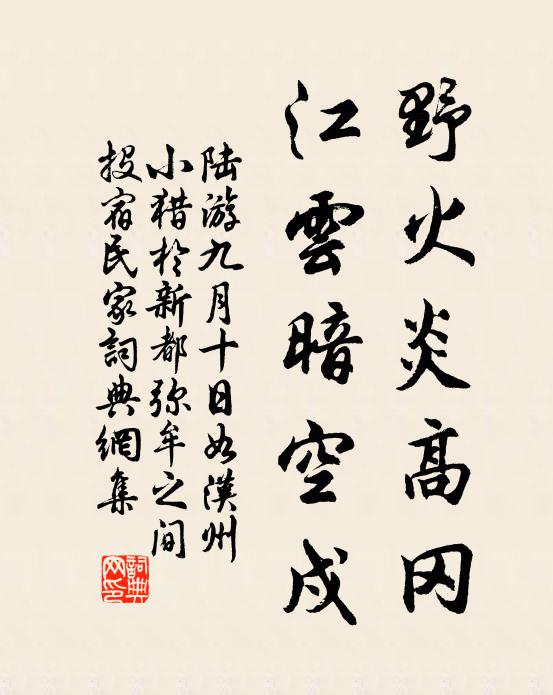 野火炎高冈
江雲暗空戍
陆游九月十日如漢州
小猎於新都弥牟之间
投宿民家詞典網集
詞典網印